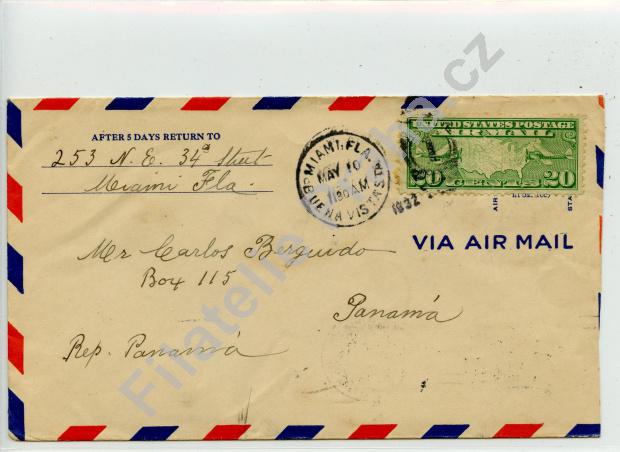 AFTER 5 DAYS RETURN TO
253 N. E. 34th Street
Miami Fla.
MIAMI, FLA.
MAY 10
11 30 AM
1932
BUENA VISTA STA.
UNITED STATES POSTAGE
AIR MAIL
20 CENTS 20
VIA AIR MAIL
Mr Carlos Berguido
Box 115
Panamá
Rep. Panamá